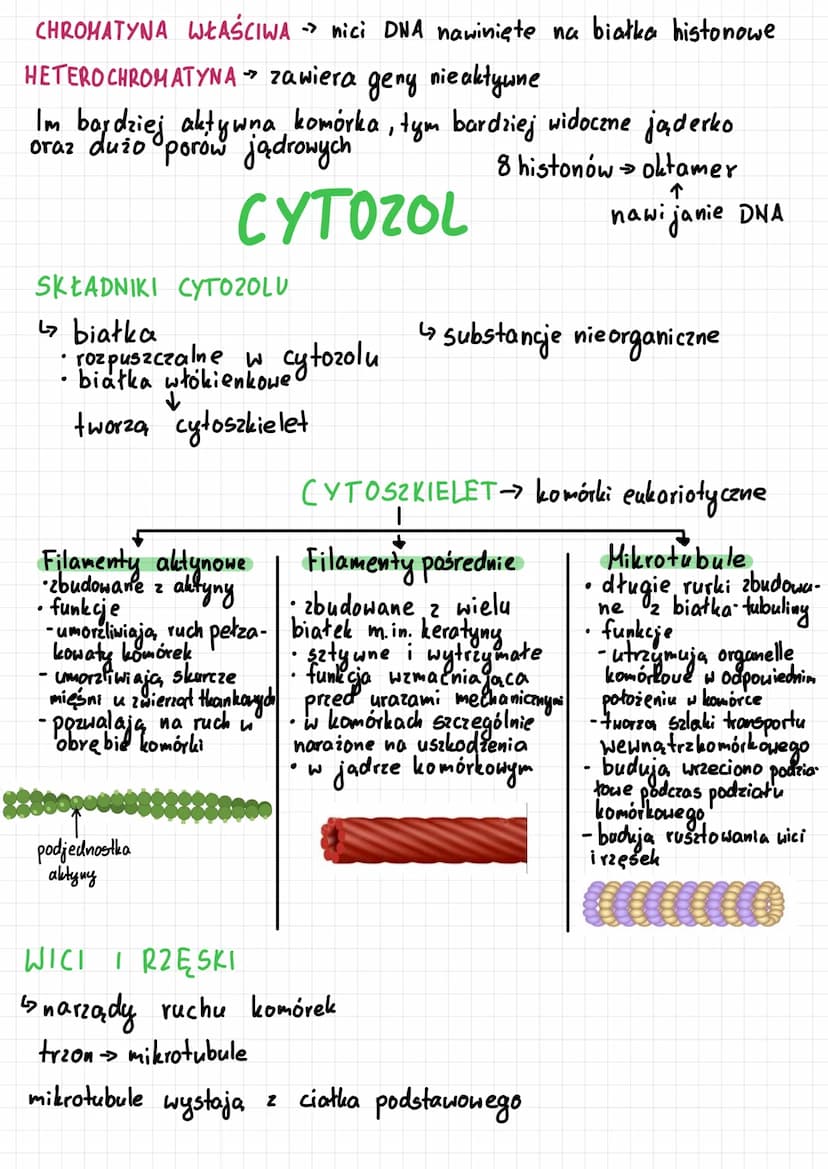 CHROMATYNA WŁAŚCIWA -> nici DNA nawinięte na białka histonowe
HETEROCHROMATYNA -> zawiera geny nieaktywne
Im bardziej aktywna komórka, tym bardziej widoczne jąderko
oraz dużo porów jądrowych
8 histonów -> oktamer
↑
nawijanie DNA
CYTOZOL
SKŁADNIKI CYTOZOLU
↳ białka
· rozpuszczalne w cytozolu
· białka włókienkowe
↓
tworzą cytoszkielet
↳ substancje nieorganiczne
CYTOSZKIELET -> komórki eukariotyczne
Filamenty aktynowe
· zbudowane z aktyny
· funkcje
- umorżliwiają ruch pełza-
kowaty komórek
- umorzliwiają skurcze
mięśni u zwierząt tkankowych
- pozwalają na ruch w
obrębie komórki
podjednostka
aktyny
Filamenty pośrednie
· zbudowane z wielu
białek m.in. keratyny
· sztywne i wytrzymałe
· funkcja wzmacniająca
przed urazami mechanicznymi
· w komórkach szczególnie
narażone na uszkodzenia
· w jądrze komórkowym
Mikrotubule
· długie rurki zbudowa-
ne z białka-tubuliny
· funkcje
- utrzymują organelle
komórkowe w odpowiednim
położeniu w komórce
- tworzą szlaki transportu
wewnątrzkomórkowego
- budują wrzeciono podzia-
łowe podczas podziału
komórkowego
- budują rusztowania wici
i rzęsek
WICI I RZĘSKI
↳ narządy ruchu komórek
trzon -> mikrotubule
mikrotubule wystają z ciałka podstawowego